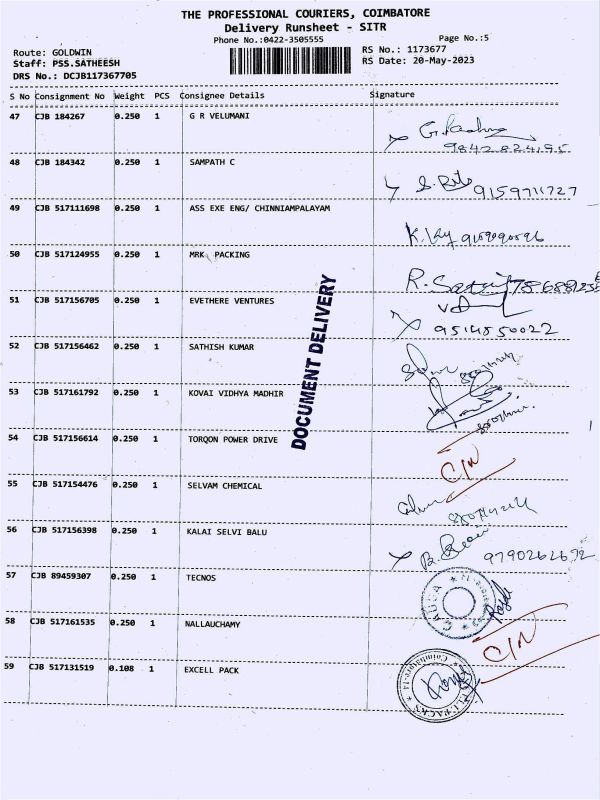 THE PROFESSIONAL COURIERS, COIMBATORE
Delivery Runsheet - SITR
Phone No.:0422-3505555
Page No.:5
Route: GOLDWIN
RS No.: 1173677
Staff: PSS.SATHEESH
RS Date: 20-May-2023
DRS No.: DCJB117367705
S No Consignment No Weight PCS Consignee Details Signature
47 CJB 184267 0.250 1 G R VELUMANI
9842824195
48 CJB 184342 0.250 1 SAMPATH C
9159711727
49 CJB 517111698 0.250 1 ASS EXE ENG/ CHINNIAMPALAYAM
50 CJB 517124955 0.250 1 MRK PACKING
51 CJB 517156705 0.250 1 EVETHERE VENTURES
9514550022
52 CJB 517156462 0.250 1 SATHISH KUMAR
53 CJB 517161792 0.250 1 KOVAI VIDHYA MADHIR
54 CJB 517156614 0.250 1 TORQON POWER DRIVE
C/N
55 CJB 517154476 0.250 1 SELVAM CHEMICAL
56 CJB 517156398 0.250 1 KALAI SELVI BALU
9790262692
57 CJB 89459307 0.250 1 TECNOS
58 CJB 517161535 0.250 1 NALLAUCHAMY
C/N
59 CJB 517131519 0.108 1 EXCELL PACK
DOCUMENT DELIVERY